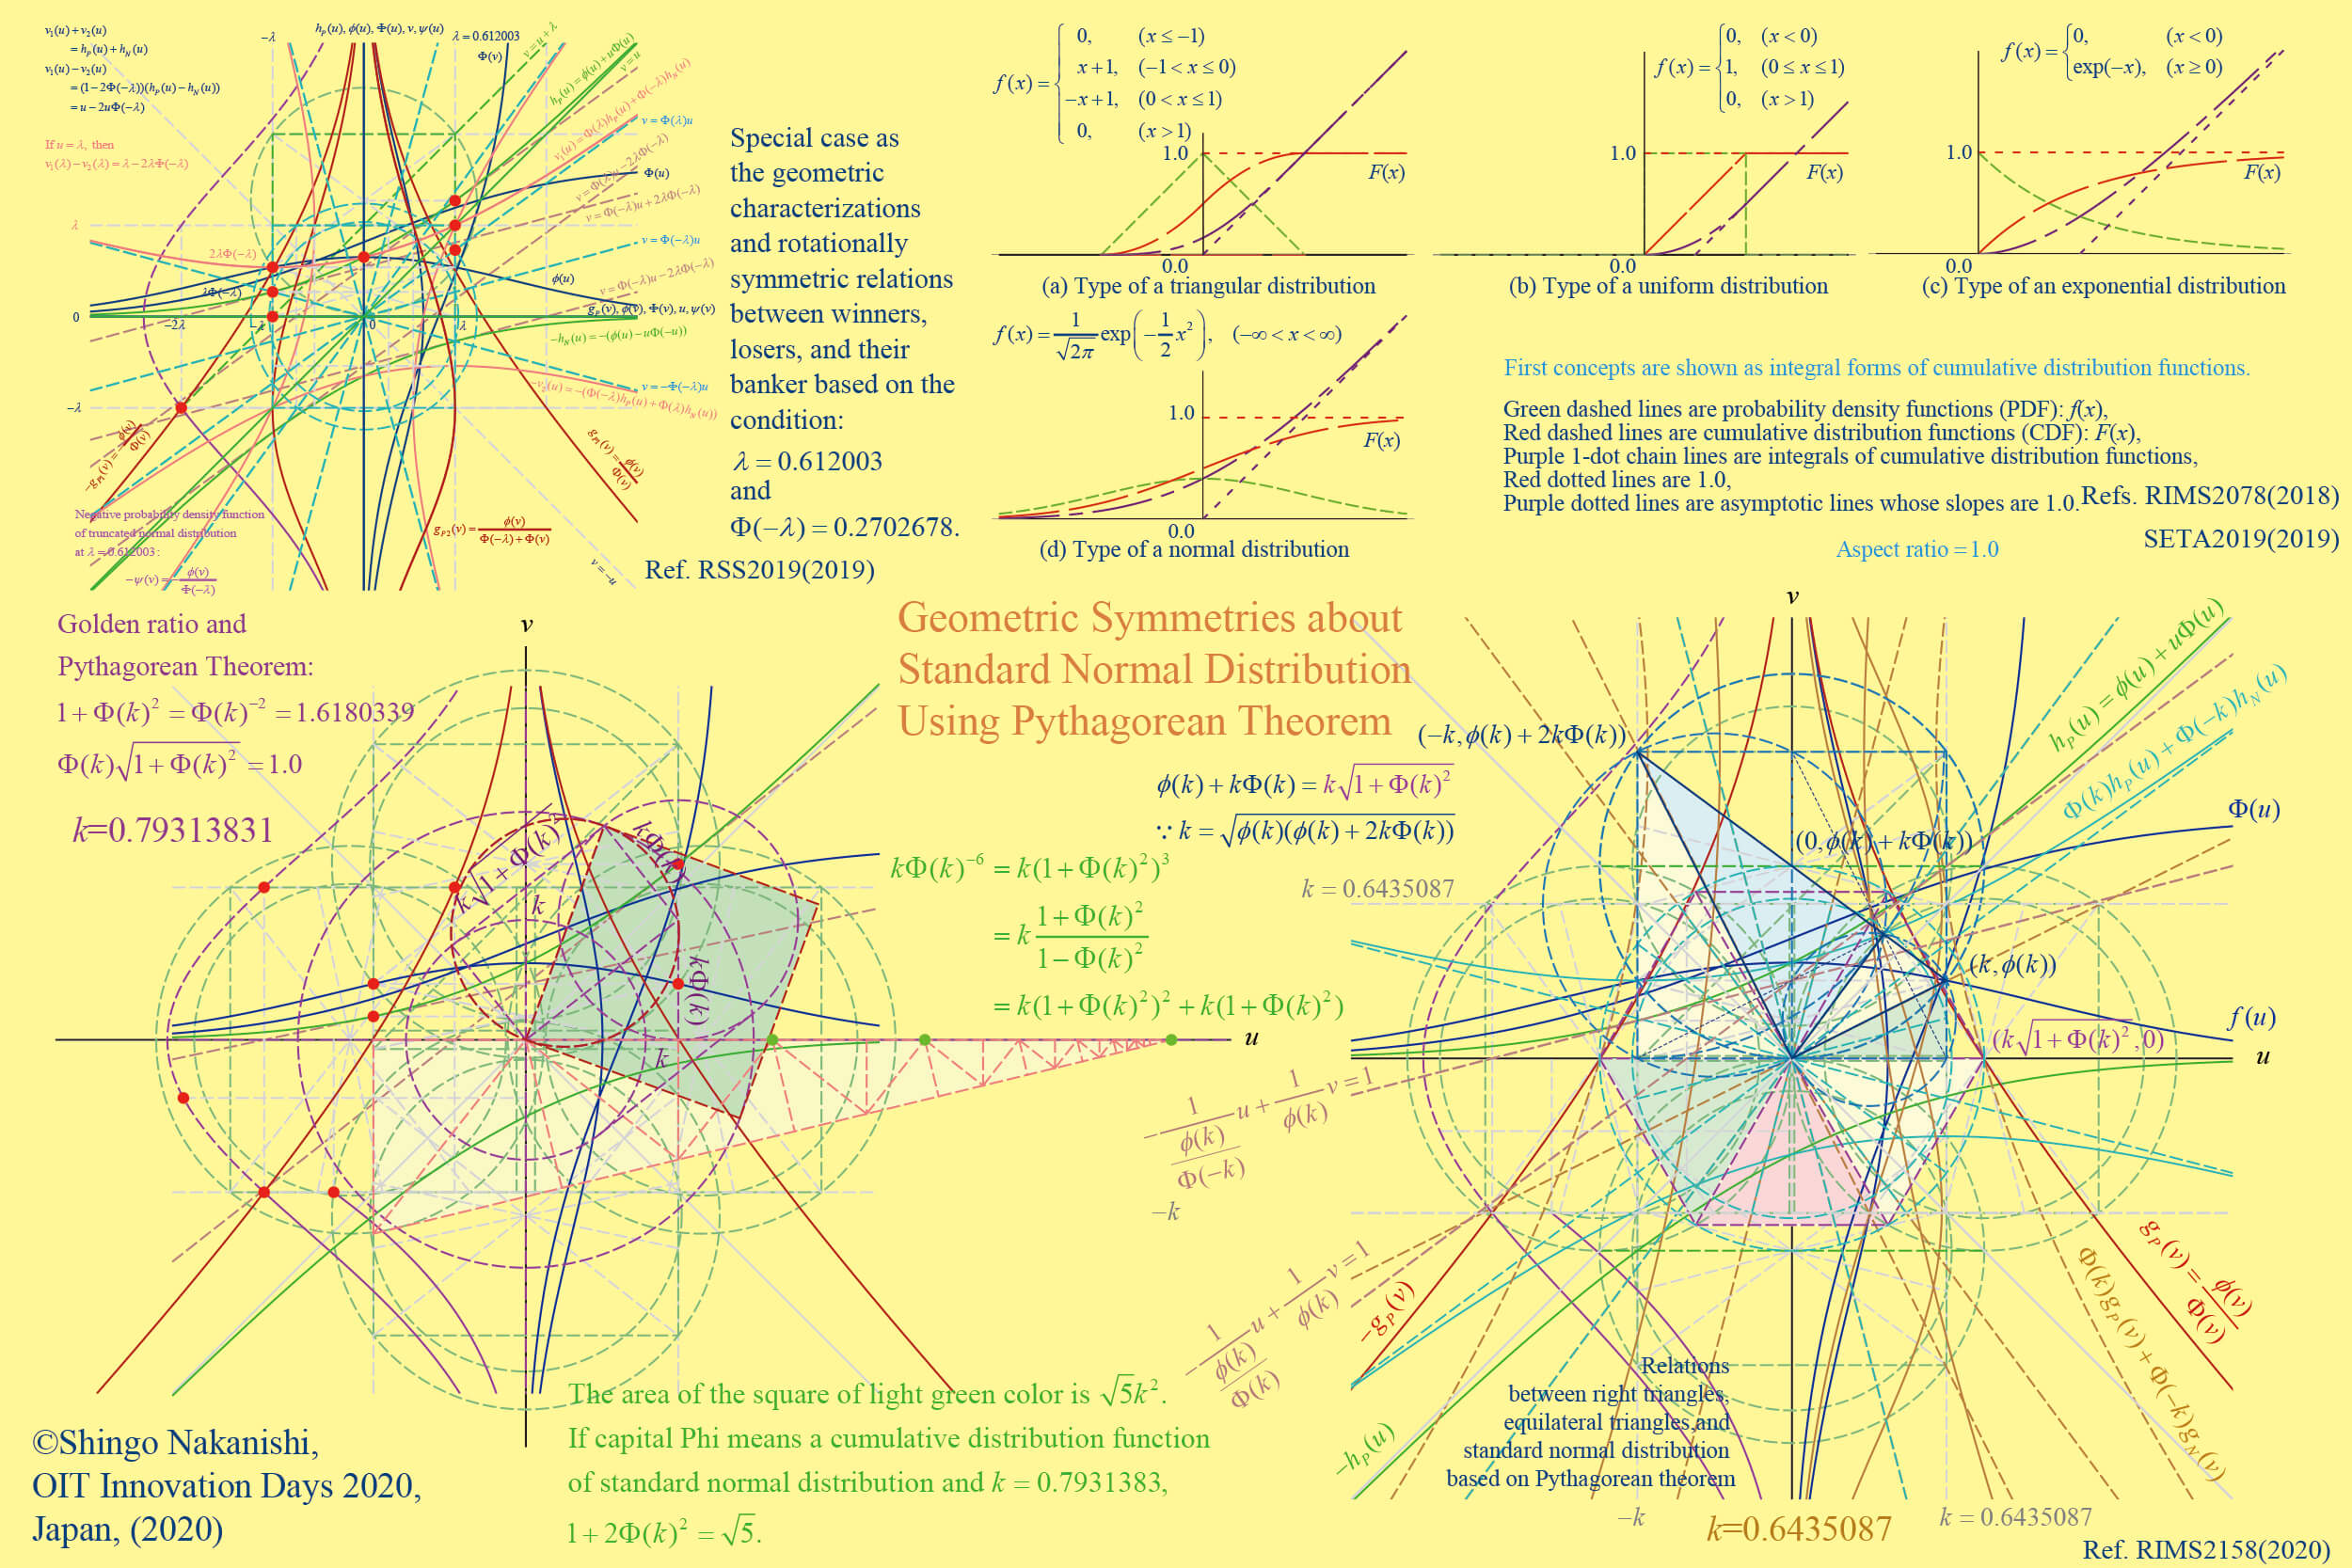 v₁(u)+v₂(u)
= h_P(u)+h_N(u)
v₁(u)−v₂(u)
= (1−2Φ(−λ))(h_P(u)−h_N(u))
= u−2uΦ(−λ)
If u = λ, then
v₁(λ)−v₂(λ) = λ−2λΦ(−λ)
−λ
h_P(u), ϕ(u), Φ(u), v, ψ(u)
λ = 0.612003
Φ(v)
v = u+λ
h_P(u) = ϕ(u)+uΦ(u)
v = u
v₁(u) = Φ(λ)h_P(u)+Φ(−λ)h_N(u)
v = Φ(λ)u
v = Φ(λ)u−2λΦ(−λ)
Φ(u)
v = Φ(−λ)u+2λΦ(−λ)
v = Φ(−λ)u
v = Φ(−λ)u−2λΦ(−λ)
ϕ(u)
g_P(v), ϕ(v), Φ(v), u, ψ(v)
−h_N(u) = −(ϕ(u)−uΦ(−u))
v = −Φ(−λ)u
−v₂(u) = −(Φ(−λ)h_P(u)+Φ(λ)h_N(u))
λ
2λΦ(−λ)
λΦ(−λ)
0
−2λ
−λ
0
λ
−λ
−g_P1(v) = −ϕ(v)/Φ(v)
g_P1(v) = ϕ(v)/Φ(v)
g_P2(v) = ϕ(v)/(Φ(−λ)+Φ(v))
Negative probability density function
of truncated normal distribution
at λ = 0.612003 :
−ψ(v) = −ϕ(v)/Φ(−λ)
v = −u
Special case as
the geometric
characterizations
and rotationally
symmetric relations
between winners,
losers, and their
banker based on the
condition:
λ = 0.612003
and
Φ(−λ) = 0.2702678.
Ref. RSS2019(2019)
f(x) = { 0, (x ≤ −1)
x+1, (−1 < x ≤ 0)
−x+1, (0 < x ≤ 1)
0, (x > 1)
1.0
F(x)
0.0
(a) Type of a triangular distribution
f(x) = { 0, (x < 0)
1, (0 ≤ x ≤ 1)
0, (x > 1)
1.0
F(x)
0.0
(b) Type of a uniform distribution
f(x) = { 0, (x < 0)
exp(−x), (x ≥ 0)
1.0
F(x)
0.0
(c) Type of an exponential distribution
f(x) = 1/√(2π) exp(−1/2 x²), (−∞ < x < ∞)
1.0
F(x)
0.0
(d) Type of a normal distribution
First concepts are shown as integral forms of cumulative distribution functions.
Green dashed lines are probability density functions (PDF): f(x),
Red dashed lines are cumulative distribution functions (CDF): F(x),
Purple 1-dot chain lines are integrals of cumulative distribution functions,
Red dotted lines are 1.0,
Purple dotted lines are asymptotic lines whose slopes are 1.0.
Refs. RIMS2078(2018)
SETA2019(2019)
Aspect ratio = 1.0
Geometric Symmetries about
Standard Normal Distribution
Using Pythagorean Theorem
Golden ratio and
Pythagorean Theorem:
1+Φ(k)² = Φ(k)⁻² = 1.6180339
Φ(k)√(1+Φ(k)²) = 1.0
k=0.79313831
v
k√(1+Φ(k)²)
kΦ(k)
k
kΦ(k)
k
u
ϕ(k)+kΦ(k) = k√(1+Φ(k)²)
∵ k = √(ϕ(k)(ϕ(k)+2kΦ(k)))
kΦ(k)⁻⁶ = k(1+Φ(k)²)³
= k (1+Φ(k)²)/(1−Φ(k)²)
= k(1+Φ(k)²)²+k(1+Φ(k)²)
k = 0.6435087
The area of the square of light green color is √5k².
If capital Phi means a cumulative distribution function
of standard normal distribution and k = 0.7931383,
1+2Φ(k)² = √5.
©Shingo Nakanishi,
OIT Innovation Days 2020,
Japan, (2020)
v
(−k, ϕ(k)+2kΦ(k))
(0, ϕ(k)+kΦ(k))
(k, ϕ(k))
(k√(1+Φ(k)²), 0)
h_P(u) = ϕ(u)+uΦ(u)
Φ(k)h_P(u)+Φ(−k)h_N(u)
Φ(u)
f(u)
u
−1/(ϕ(k)/Φ(−k))u+1/ϕ(k) v = 1
−k
−1/(ϕ(k)/Φ(k))u+1/ϕ(k) v = 1
−g_P(v)
−h_P(u)
g_P(v) = ϕ(v)/Φ(v)
Φ(k)g_P(v)+Φ(−k)g_N(v)
Relations
between right triangles,
equilateral triangles and
standard normal distribution
based on Pythagorean theorem
−k
k=0.6435087
k = 0.6435087
Ref. RIMS2158(2020)